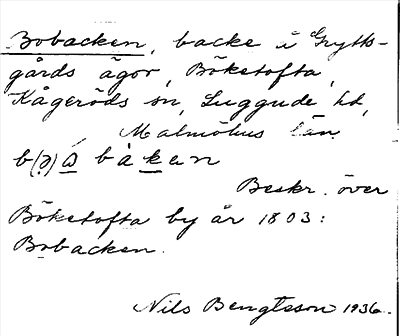 Bobacken, backe i Grytts-
gårds ägor, Böketofta,
Kågeröds sn, Luggude hd,
Malmöhus län
båkan
Beskr. över
Böketofta by år 1803:
Bobacken.
Nils Bengtsson 1936.